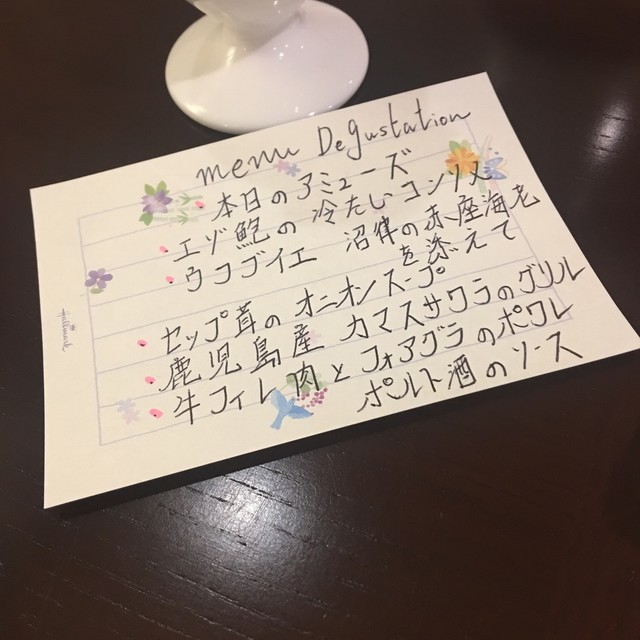 menu Degustation
本日のアミューズ
エゾ鮑の冷たいコンソメ
ウフブイエ 沼津の赤座海老
を添えて
セップ茸のオニオンスープ
鹿児島産 カマスサワラのグリル
牛フィレ肉とフォアグラのポワレ
ポルト酒のソース
Hallmark